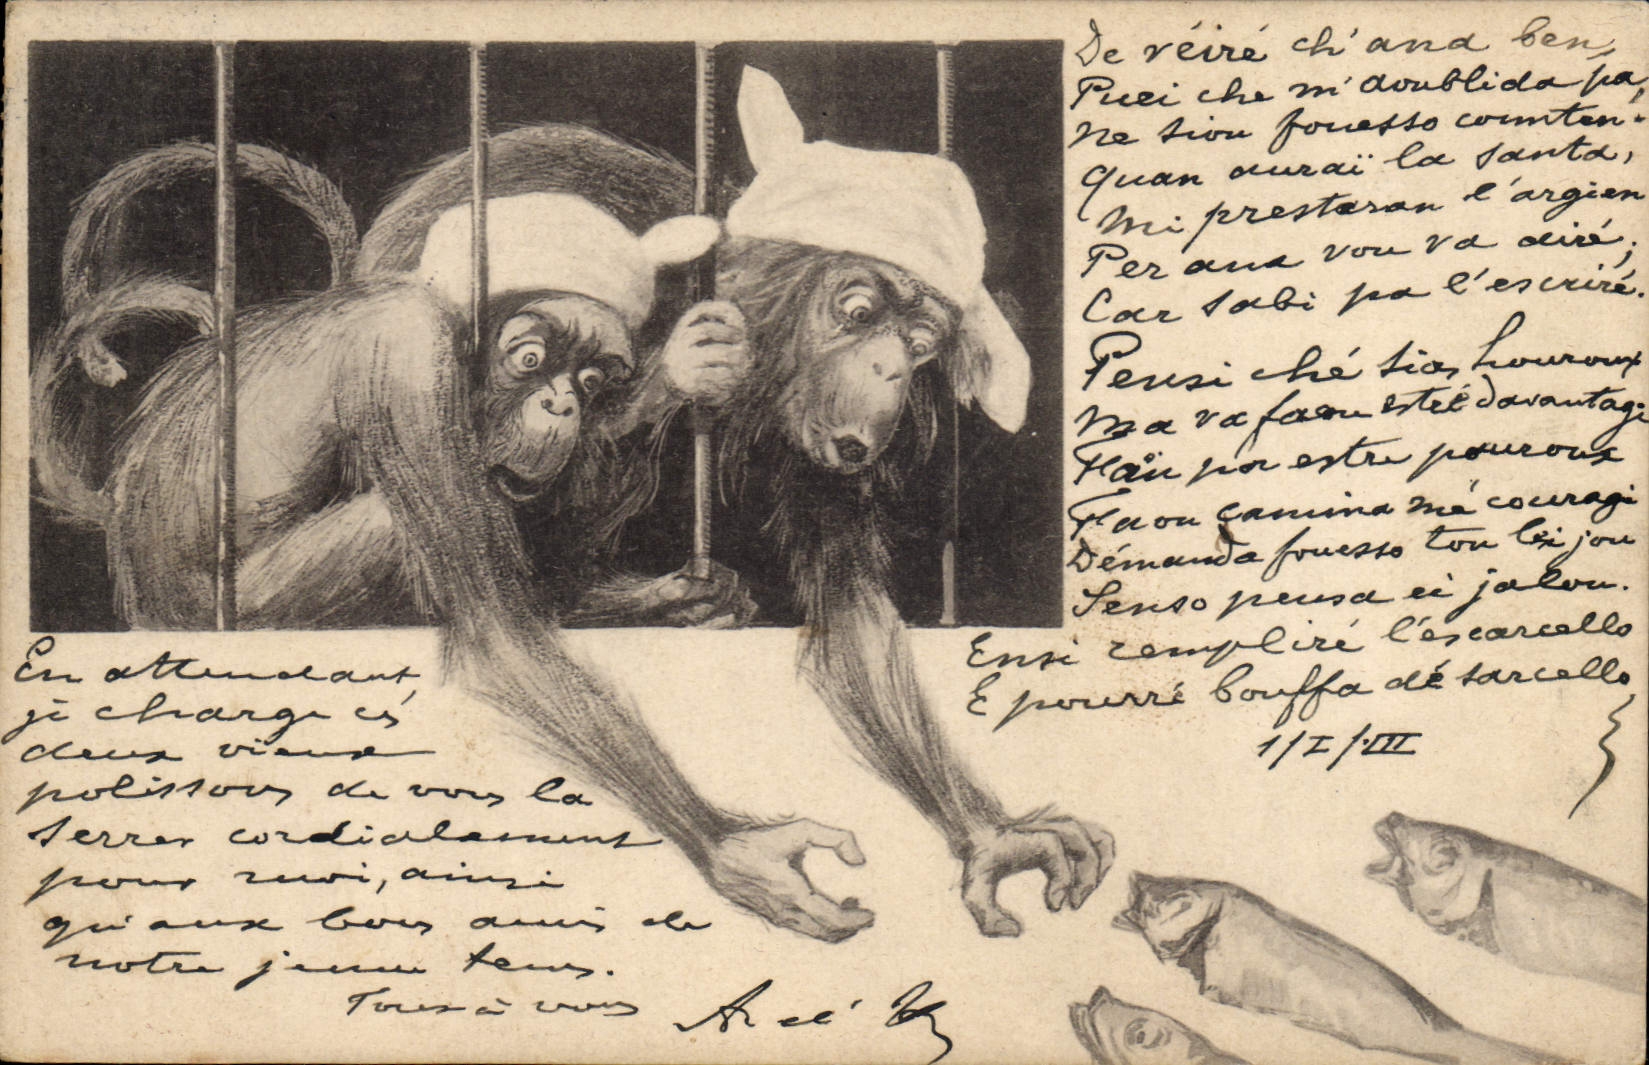 De véiré ch'ana ben,
Puei che m'doublida pa,
ne siou fouesso counten.
Quan auraï la santa,
Mi prestaran l'argien
Per ana vou va diré;
Car sabi pa l'escriré.
Pensi ché sias houroux
Ma va faou estré davantagi
Faïu pa estre pouroux
Faou camina mé couragi
Démanda fouesso tou lei jou
Senso pensa ei jalou.
Ensi rempliré l'escarcello
E pourré bouffa dé sarcello
1/I/.III
En attendant
je charge ces
deux vieux
polissons de vous la
serrer cordialement
pour moi, ainsi
qu'aux bons amis de
notre jeune tems.
Tout à vous